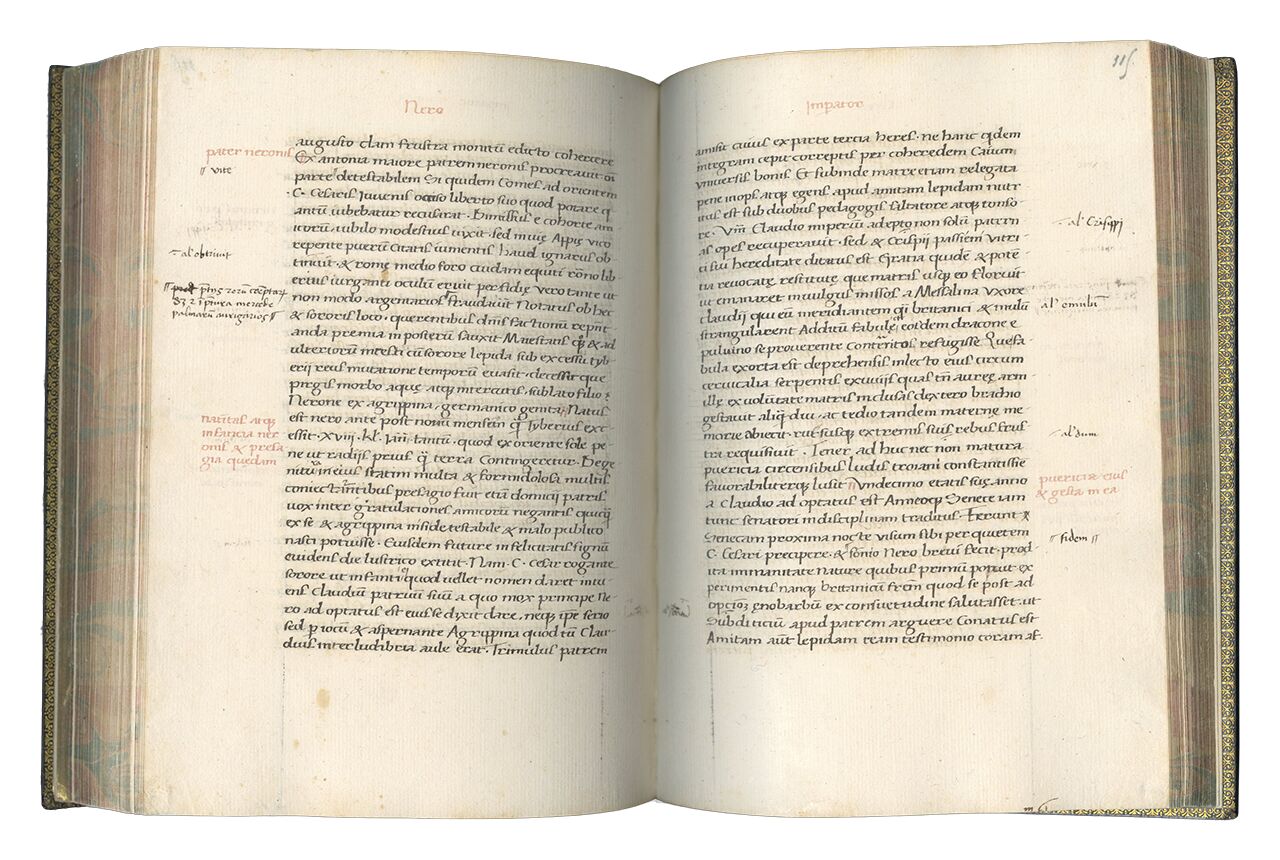 Nero
augusto clam frustra monitū edicto cohercere
pater neronis
Ex antonia maiore patrem neronis procreavit oī
vite
parte detestabilem Si quidem Comes ad orientem
C. Cesaris Iuvenis occiso liberto suo quod potare q
antū iubebatur recusarat. Dimissus e cohorte am
icorū nihilo modestius vixit. sed in vię Appię vico
al' obtrivit
repente puerū Citatis iumentis haud ignarus ob
tinuit. & romę medio foro cuidam equiti rōno lib
erius iurganti oculū eruit perfidię vero tante ut
non modo argentarios fraudavit Notatus ob hec
palmarū aurigarios
& sororis loco. querentibus dnīs factionū repnt
anda premia in posterū sanxit Maiestatis qq & ad
ulteriorū incesti cū sorore lepida sub excessu tyb
erij reus mutatione temporū evasit. decessit que
pirgis morbo aquę atq intercutis. sublato filio
Nerone ex agrippina, germanico genita. Natus
nativitas atq
infancia ner
onis & presa
gia quedam
est nero ante post nonū mensem q Tyberius exc
essit. XVIII. kl. Ian. tantū. quod exoriente sole pe
ne ut radijs prius q terra Contingeretur. De ge
nitura eius statim multa & formidolosa multis
coniectantibus presagio fuit etiā domicij patris
vox inter gratulationes amicorū negantis quicq
ex se & agrippina nisi detestabile & malo publico
nasti potuisse. Eiusdem future infelicitatis signū
evidens die lustrico extitit. Nam. C. cesar rogante
sorore ut infanti quod vellet nomen daret intu
ens Claudiū patruū suū a quo mox principe Ne
ro ad optatus est eius se dixit dare. neq ipse serio
sed p iocū & aspernante Agrippina quod tū Clau
dius inter ludibria aule erat. Trimulus patrem
115
Imperator
amisit cuius ex parte tercia heres. ne hanc qdem
integram cepit correptis per coheredem Caium
universis bonis. Et subinde matre etiam relegata
pene inops atq egens apud amitam lepidam nutr
itus est sub duobus pedagogis saltatore atq tonso
re. Vm Claudio imperiū adepto non solū patern
al' Crispi
as opes recuperavit. sed & Crispii passieni vitri
ci sui hereditate ditatus est Gratia quide & pote
tia revocatę restitutę que matris usq eo floruit
ut emanaret in vulgus missos a Messalina vxore
al' emulū
claudij qui eū meridiantem qsi britanici & mulū
strangularent Additū fabulę eosdem dracone e
pulvino se proferente Conterritos refugisse Que fa
bula exorta est deprehensis in lecto eius circum
cervicalia serpentis exuvijs quas tn aureę arm
illę ex volūtate matris inclusas dextero brachio
gestavit aliq diu. ac tedio tandem materne me
al' dum
morie abiecit. rursusq extremis suis rebus frus
tra requisivit. Tener ad huc nec non matura
puericia circensibus ludis troiani constantissiē
puericia eius
& gesta in ea
favorabiliterq lusit Undecimo etatis sue anno
a Claudio ad optatus est Anneoq Senece iam
tunc senatori in disciplinam traditus Ferunt
fidem
Senecam proxima nocte visum sibi per quietem
C. Cesari precipere. & sōnio Nero brevi fecit. prod
ita immanitate nature quibus primū potuit ex
perimentis nanq britanicū frēm quod se post ad
opcionem ęnobarbū ex consuetudine salutasset. ut
Subditiciū apud patrem arguere Conatus est
Amitam aut lepidam ream testimonio coram af.